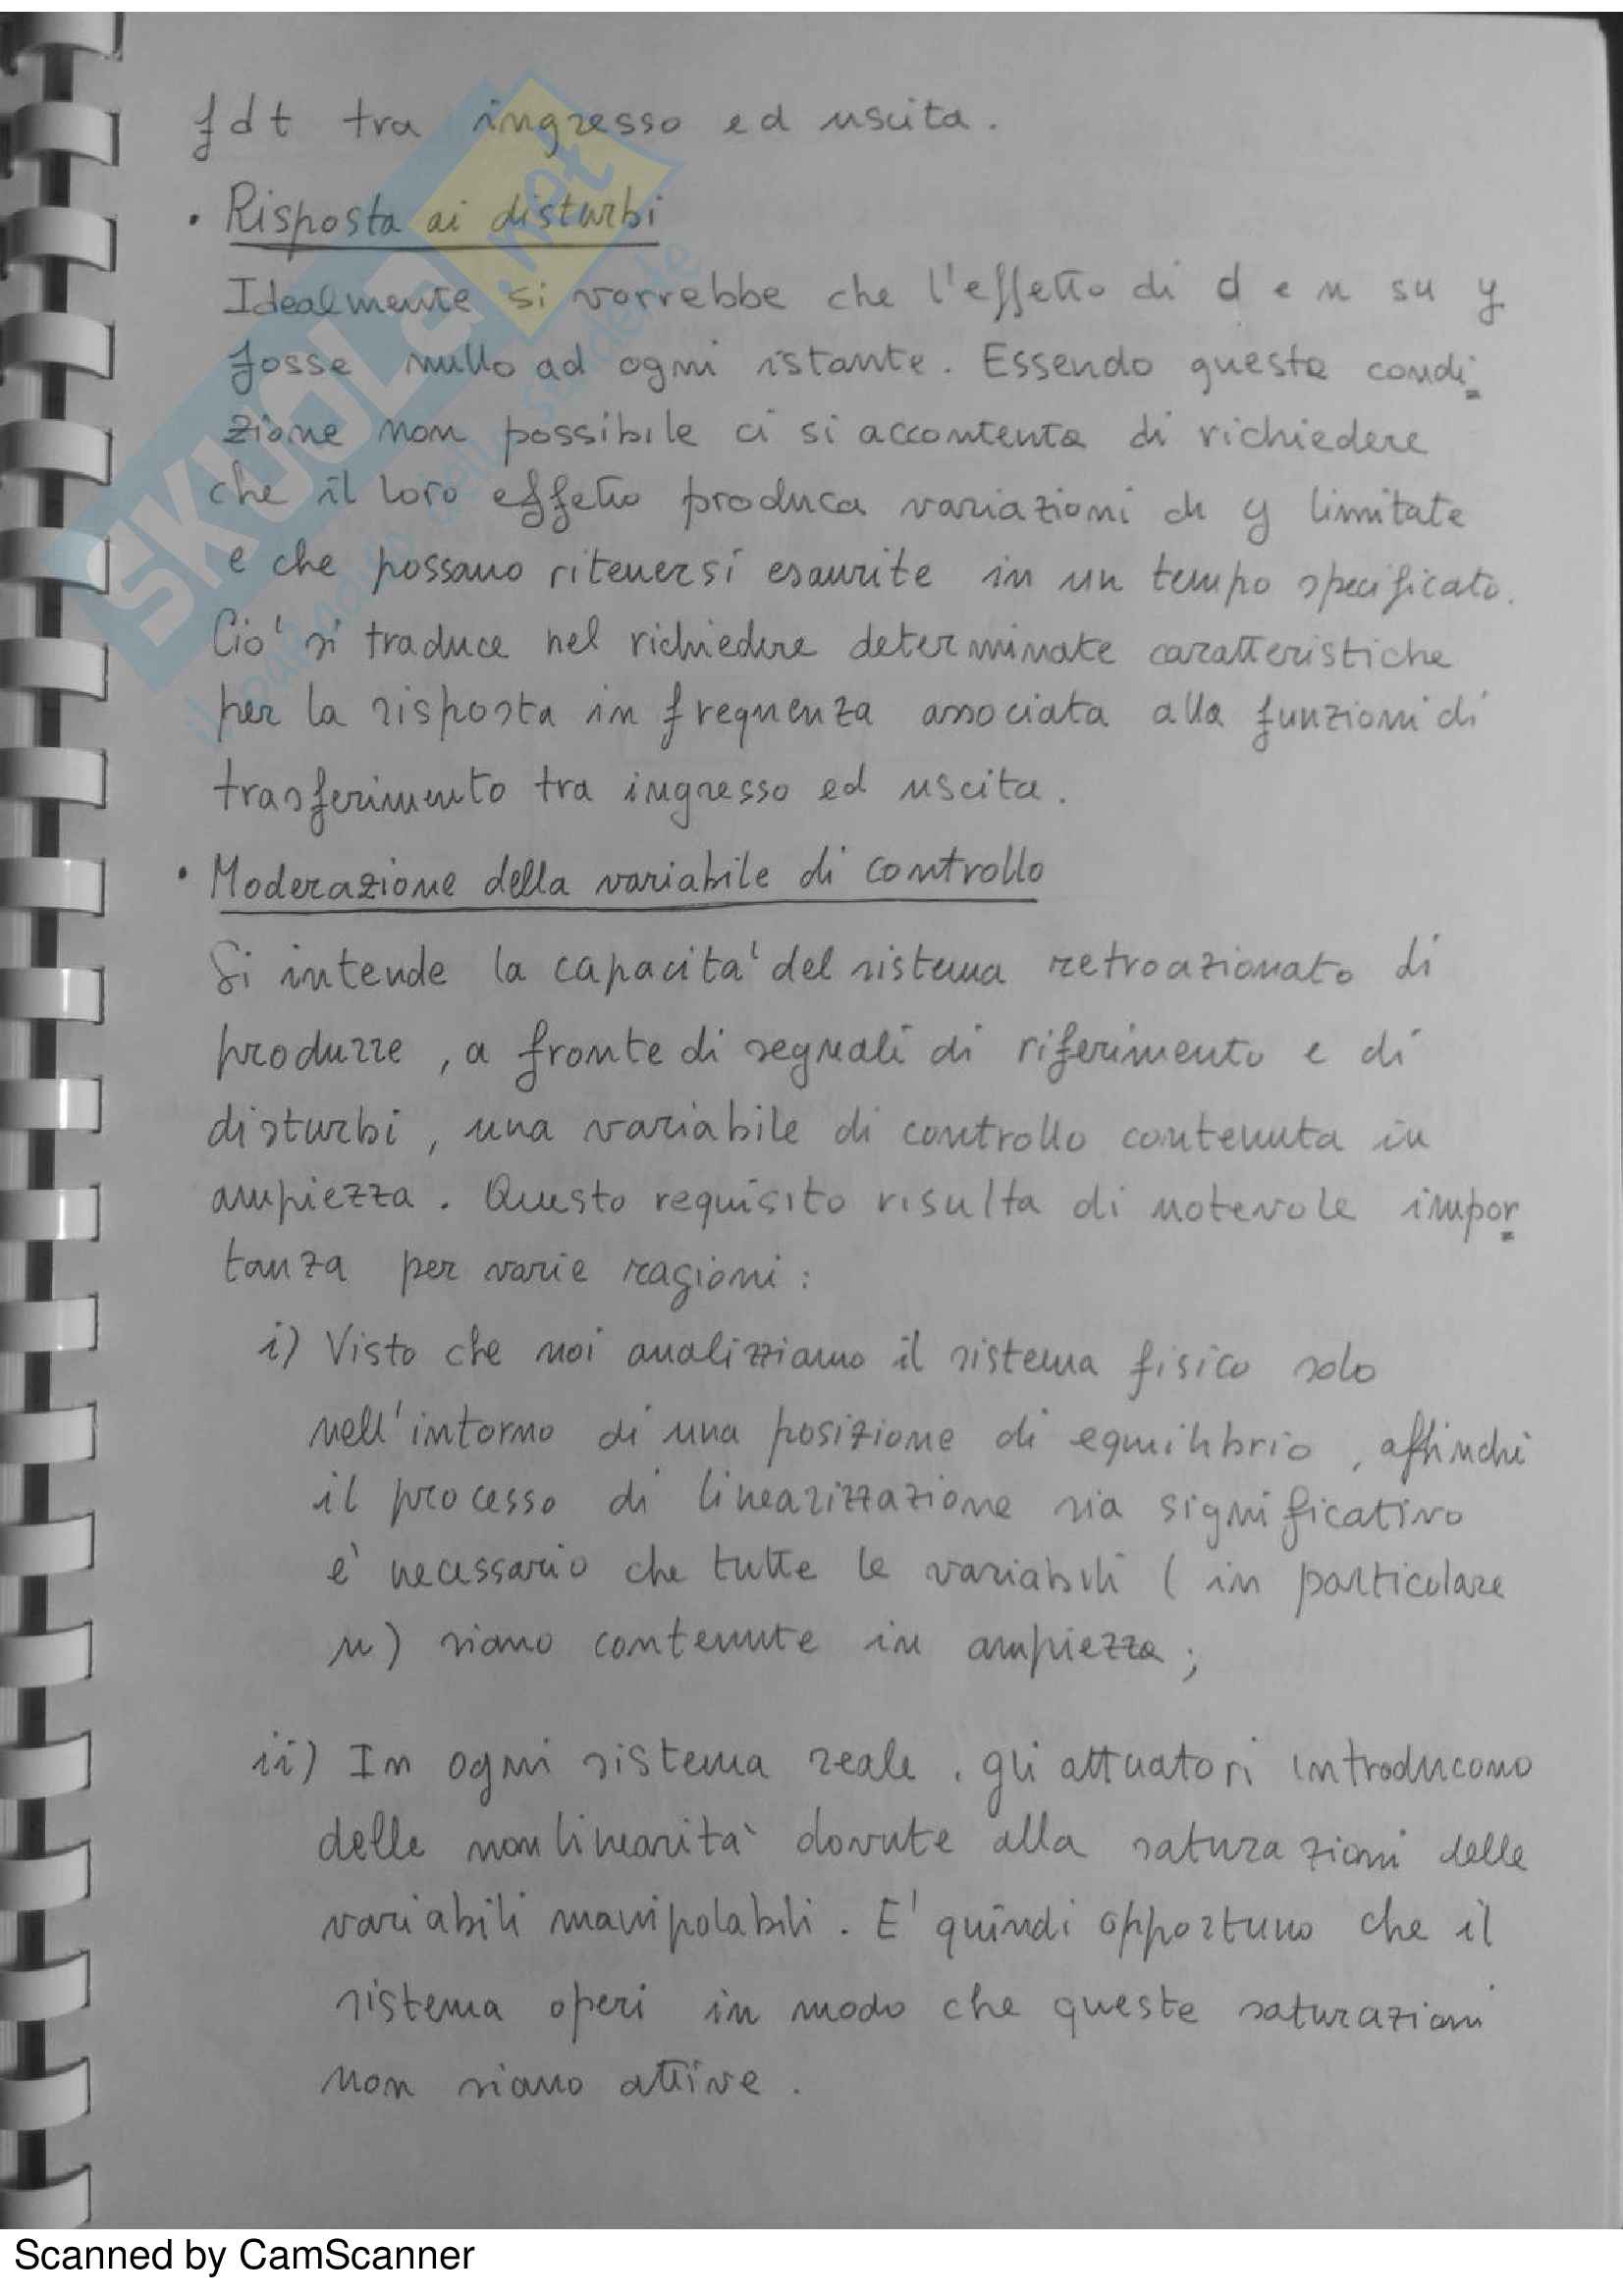 fdt tra ingresso ed uscita.
• Risposta ai disturbi
Idealmente si vorrebbe che l'effetto di d e n su y
fosse nullo ad ogni istante. Essendo questa condi=
zione non possibile ci si accontenta di richiedere
che il loro effetto produca variazioni di y limitate
e che possano ritenersi esaurite in un tempo specificato.
Cio' si traduce nel richiedere determinate caratteristiche
per la risposta in frequenza associata alla funzioni di
trasferimento tra ingresso ed uscita.
• Moderazione della variabile di controllo
Si intende la capacita' del sistema retroazionato di
produrre, a fronte di segnali di riferimento e di
disturbi, una variabile di controllo contenuta in
ampiezza. Questo requisito risulta di notevole impor=
tanza per varie ragioni:
i) Visto che noi analizziamo il sistema fisico solo
nell'intorno di una posizione di equilibrio, affinchè
il processo di linearizzazione sia significativo
e' necessario che tutte le variabili (in particolare
u) siano contenute in ampiezza;
ii) In ogni sistema reale, gli attuatori introducono
delle non linearità dovute alla saturazioni delle
variabili manipolabili. E' quindi opportuno che il
sistema operi in modo che queste saturazioni
non siano attive.
SKUOLA.net
Scanned by CamScanner